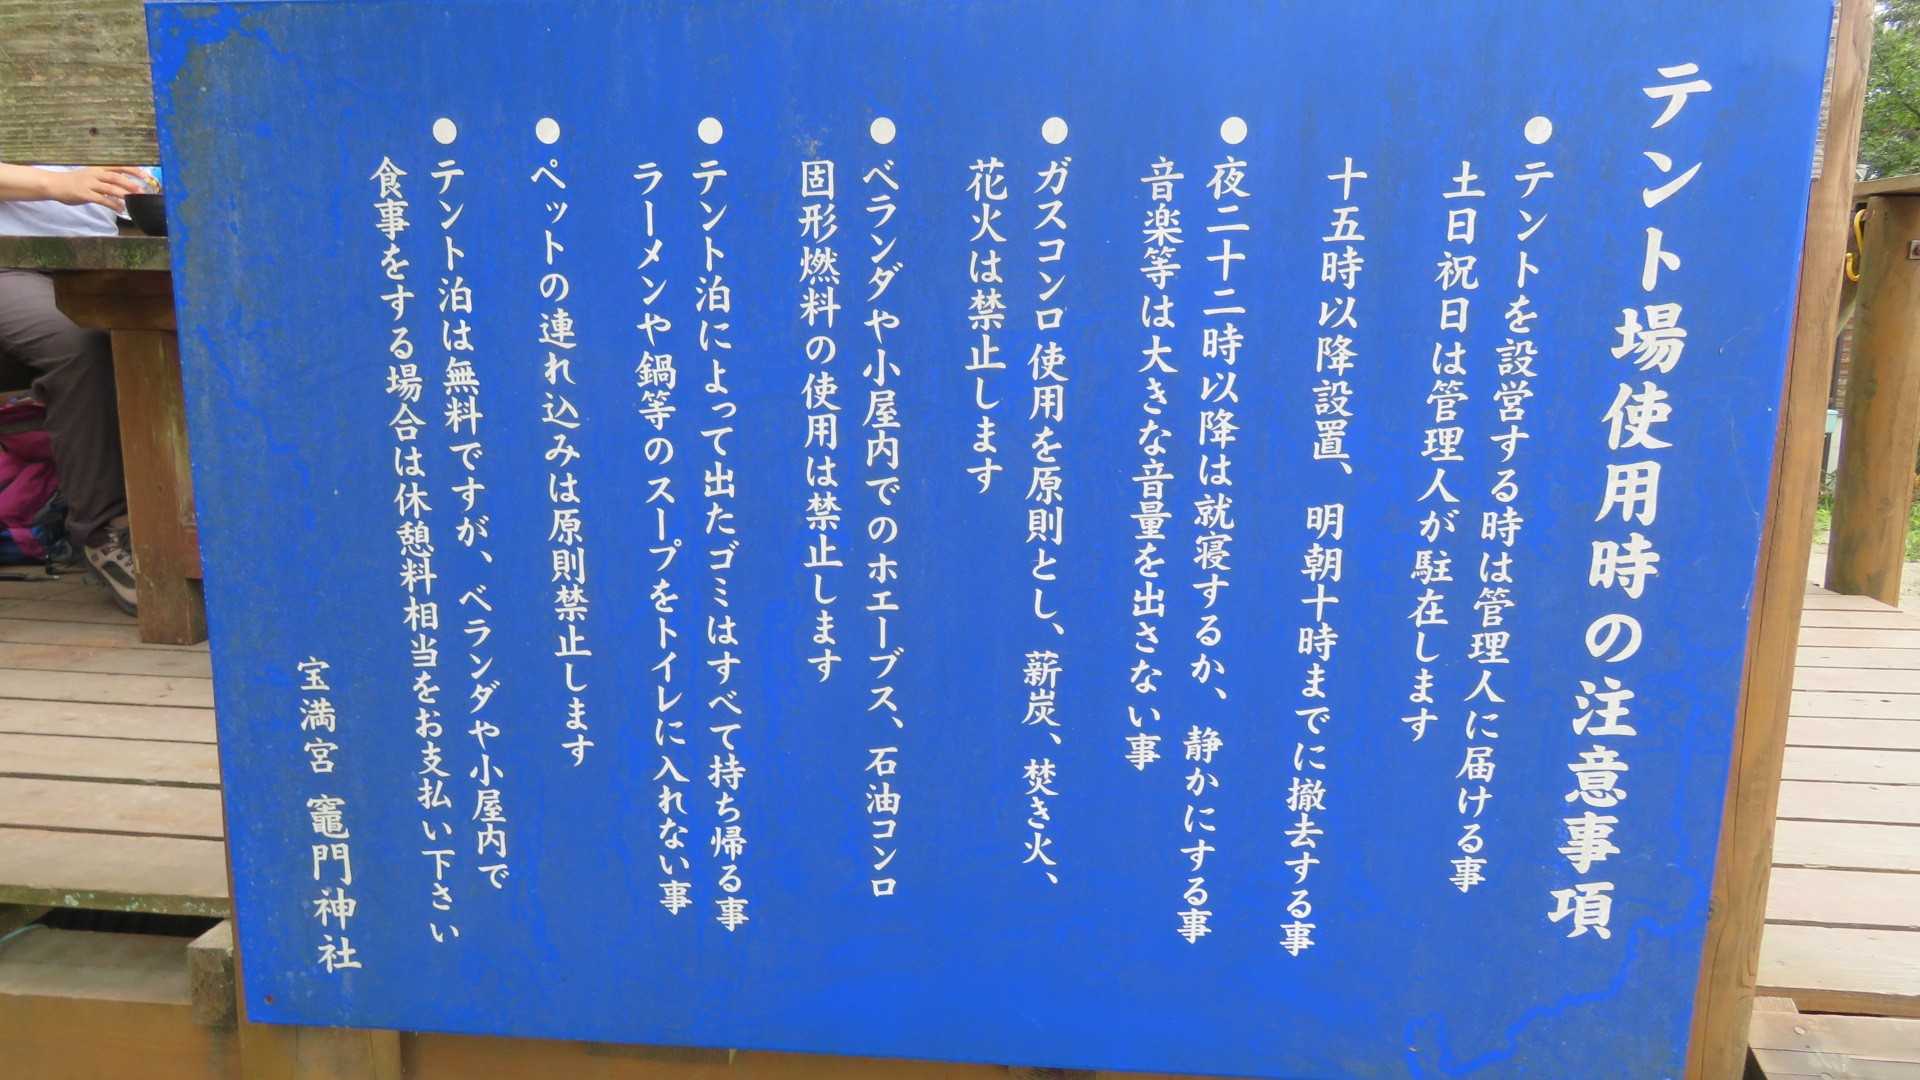 テント場使用時の注意事項
●テントを設営する時は管理人に届ける事
土日祝日は管理人が駐在します
十五時以降設置、明朝十時までに撤去する事
●夜二十二時以降は就寝するか、静かにする事
音楽等は大きな音量を出さない事
●ガスコンロ使用を原則とし、薪炭、焚き火、
花火は禁止します
●ベランダや小屋内でのホエーブス、石油コンロ
固形燃料の使用は禁止します
●テント泊によって出たゴミはすべて持ち帰る事
ラーメンや鍋等のスープをトイレに入れない事
●ペットの連れ込みは原則禁止します
●テント泊は無料ですが、ベランダや小屋内で
食事をする場合は休憩料相当をお支払い下さい
宝満宮 竈門神社